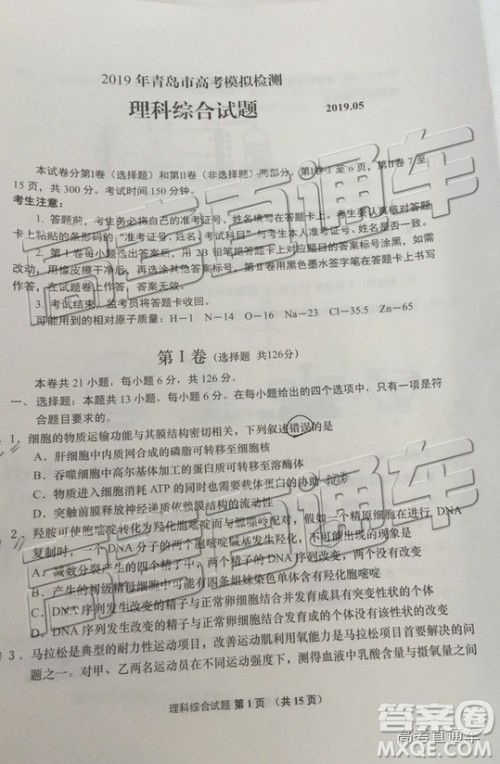 2019 年青岛市高考模拟检测
理科综合试题 2019.05
本试卷分第Ⅰ卷（选择题）和第Ⅱ卷（非选择题）两部分，第Ⅰ卷 1 至 6 页，第Ⅱ卷 7 至
15 页，共 300 分。考试时间 150 分钟。
考生注意：
1. 答题前，考生务必将自己的准考证号、姓名填写在答题卡上。考生要认真核对答题
卡上粘贴的条形码的“准考证号、姓名、考试科目”与考生本人准考证号、姓名是否一致。
2. 第Ⅰ卷每小题选出答案后，用 2B 铅笔把答题卡上对应题目的答案标号涂黑，如需
改动，用橡皮擦干净后，再选涂其他答案标号。第Ⅱ卷用黑色墨水签字笔在答题卡上书写
作答，在试题卷上作答，答案无效。
3. 考试结束，监考员将答题卡收回。
可能用到的相对原子质量：H－1 N－14 O－16 Na－23 Cl－35.5 Zn－65
第Ⅰ卷（选择题 共126分）
本卷共 21 小题，每小题 6 分，共 126 分。
一、选择题：本题共 13 小题，每小题 6 分，在每小题给出的四个选项中，只有一项是符
合题目要求的。
1．细胞的物质运输功能与其膜结构密切相关，下列叙述错误的是
A．肝细胞中内质网合成的磷脂可转移至细胞核
B．吞噬细胞中高尔基体加工的蛋白质可转移至溶酶体
C．物质进细胞消耗 ATP 的同时也需要载体蛋白的协助
D．突触前膜释放神经递质依赖膜结构的流动性
2．羟胺可使胞嘧啶转变为羟化胞嘧啶而与腺嘌呤配对，假如一个精原细胞在进行 DNA
复制时，一个 DNA 分子的两个胞嘧啶碱基发生羟化，不可能出现的现象是
A．减数分裂产生的四个精子中，DNA 序列发生改变的精子有两个
B．产生的初级精母细胞中可能有四条姐妹染色单体含有羟化胞嘧啶
C．DNA 序列发生改变的精子与正常卵细胞结合并发育成的个体一定发生性状改变
D．DNA 序列发生改变的精子与正常卵细胞结合并发育成的个体一定发生基因突变
3．马拉松是典型的耐力性运动项目，改善运动肌利用氧能力是马拉松项目首要解决的问
题之一。对甲、乙两名运动员进行逐级递增强度运动训练，测得血液中乳酸含量与摄氧量之间
理科综合试题 第 1 页 （共 15 页）
高考直通车
答案圈
MXQE.COM
高考直通车